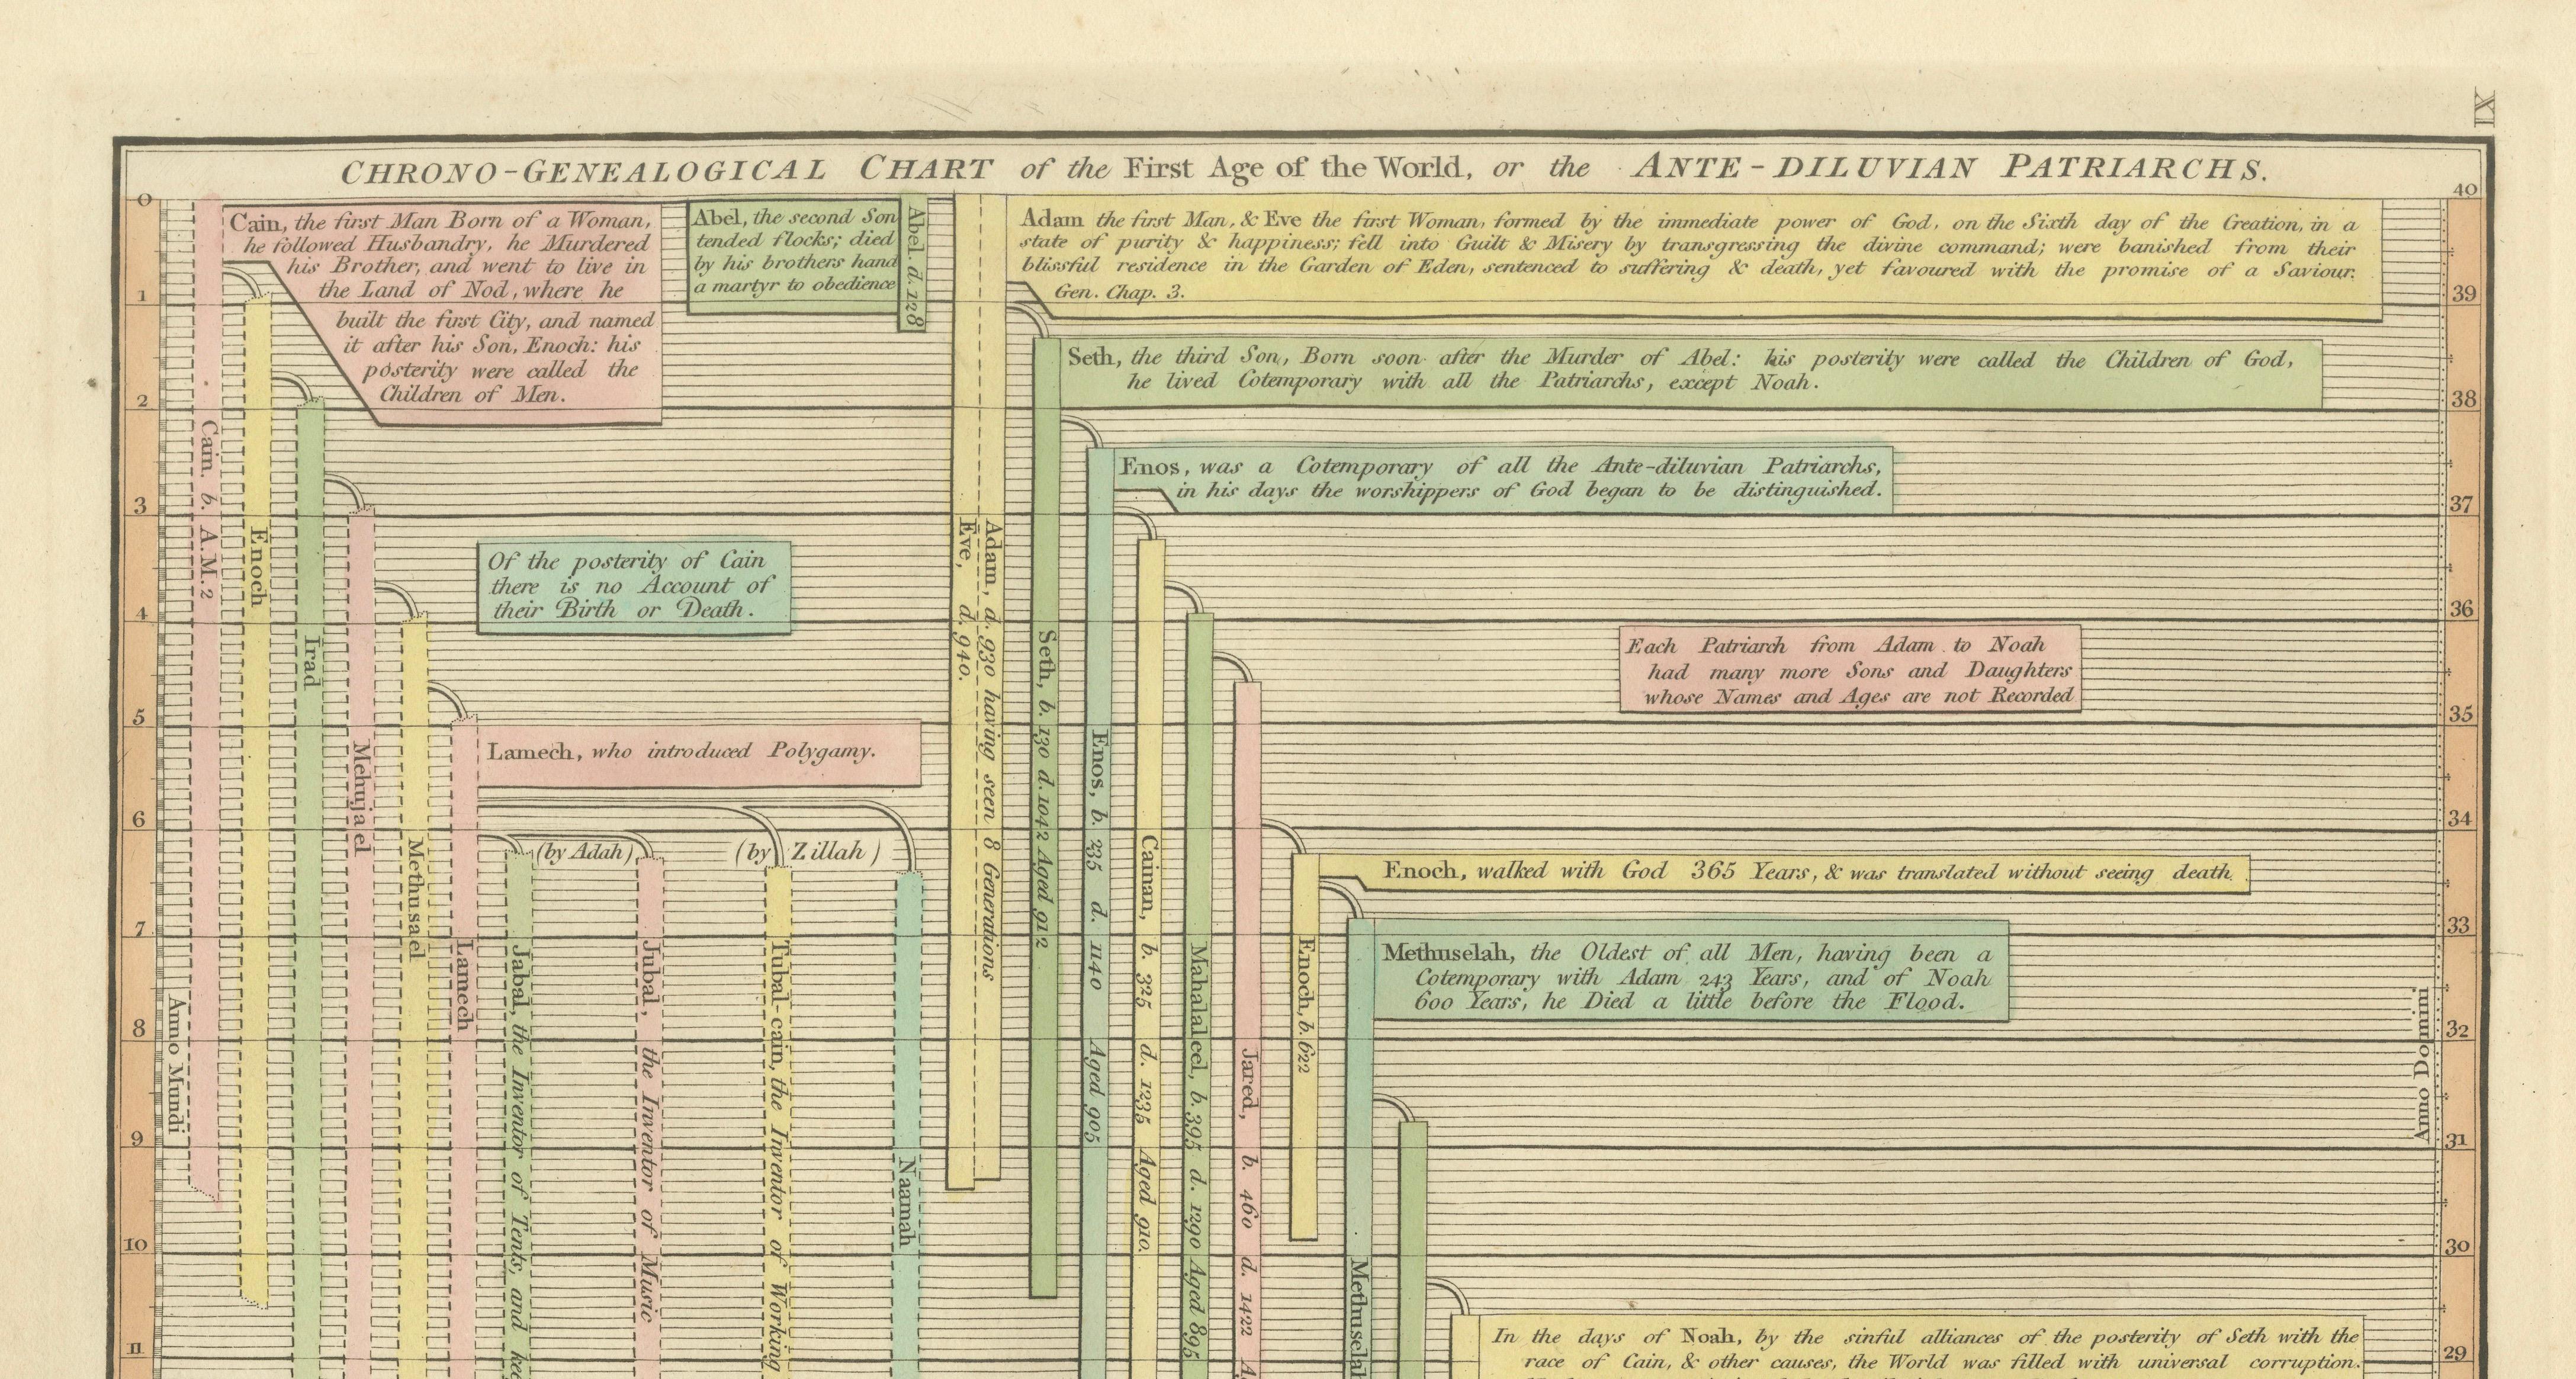 IX
CHRONO-GENEALOGICAL CHART of the First Age of the World, or the ANTE-DILUVIAN PATRIARCHS.
0
1
2
3
4
5
6
7
8
9
10
11
Anno Mundi
Cain, the first Man Born of a Woman,
he followed Husbandry, he Murdered
his Brother, and went to live in
the Land of Nod, where he
built the first City, and named
it after his Son, Enoch: his
posterity were called the
Children of Men.
Abel, the second Son
tended flocks; died
by his brothers hand
a martyr to obedience
Abel. d. 128
Adam the first Man, & Eve the first Woman, formed by the immediate power of God, on the Sixth day of the Creation, in a
state of purity & happiness; fell into Guilt & Misery by transgressing the divine command; were banished from their
blissful residence in the Garden of Eden, sentenced to suffering & death, yet favoured with the promise of a Saviour.
Gen. Chap. 3.
Seth, the third Son, Born soon after the Murder of Abel: his posterity were called the Children of God,
he lived Cotemporary with all the Patriarchs, except Noah.
Enos, was a Cotemporary of all the Ante-diluvian Patriarchs,
in his days the worshippers of God began to be distinguished.
Of the posterity of Cain
there is no Account of
their Birth or Death.
Each Patriarch from Adam to Noah
had many more Sons and Daughters
whose Names and Ages are not Recorded
Lamech, who introduced Polygamy.
(by Adah)
(by Zillah)
Enoch, walked with God 365 Years, & was translated without seeing death.
Methuselah, the Oldest of all Men, having been a
Cotemporary with Adam 243 Years, and of Noah
600 Years, he Died a little before the Flood.
In the days of Noah, by the sinful alliances of the posterity of Seth with the
race of Cain, & other causes, the World was filled with universal corruption.
Cain. b. A.M. 2
Enoch
Irad
Mehujael
Methusael
Lamech
Jabal, the Inventor of Tents, and
Jubal, the Inventor of Music
Tubal-cain, the Inventor of Working
Naamah
Eve, d. 940.
Adam, d. 930 having seen 8 Generations
Seth, b. 130 d. 1042 Aged 912
Enos, b. 235 d. 1140 Aged 905
Cainan, b. 325 d. 1235 Aged 910.
Mahalaleel, b. 395 d. 1290 Aged 895
Jared, b. 460 d. 1422
Enoch, b. 622
Methuselah
Anno Domini
40
39
38
37
36
35
34
33
32
31
30
29